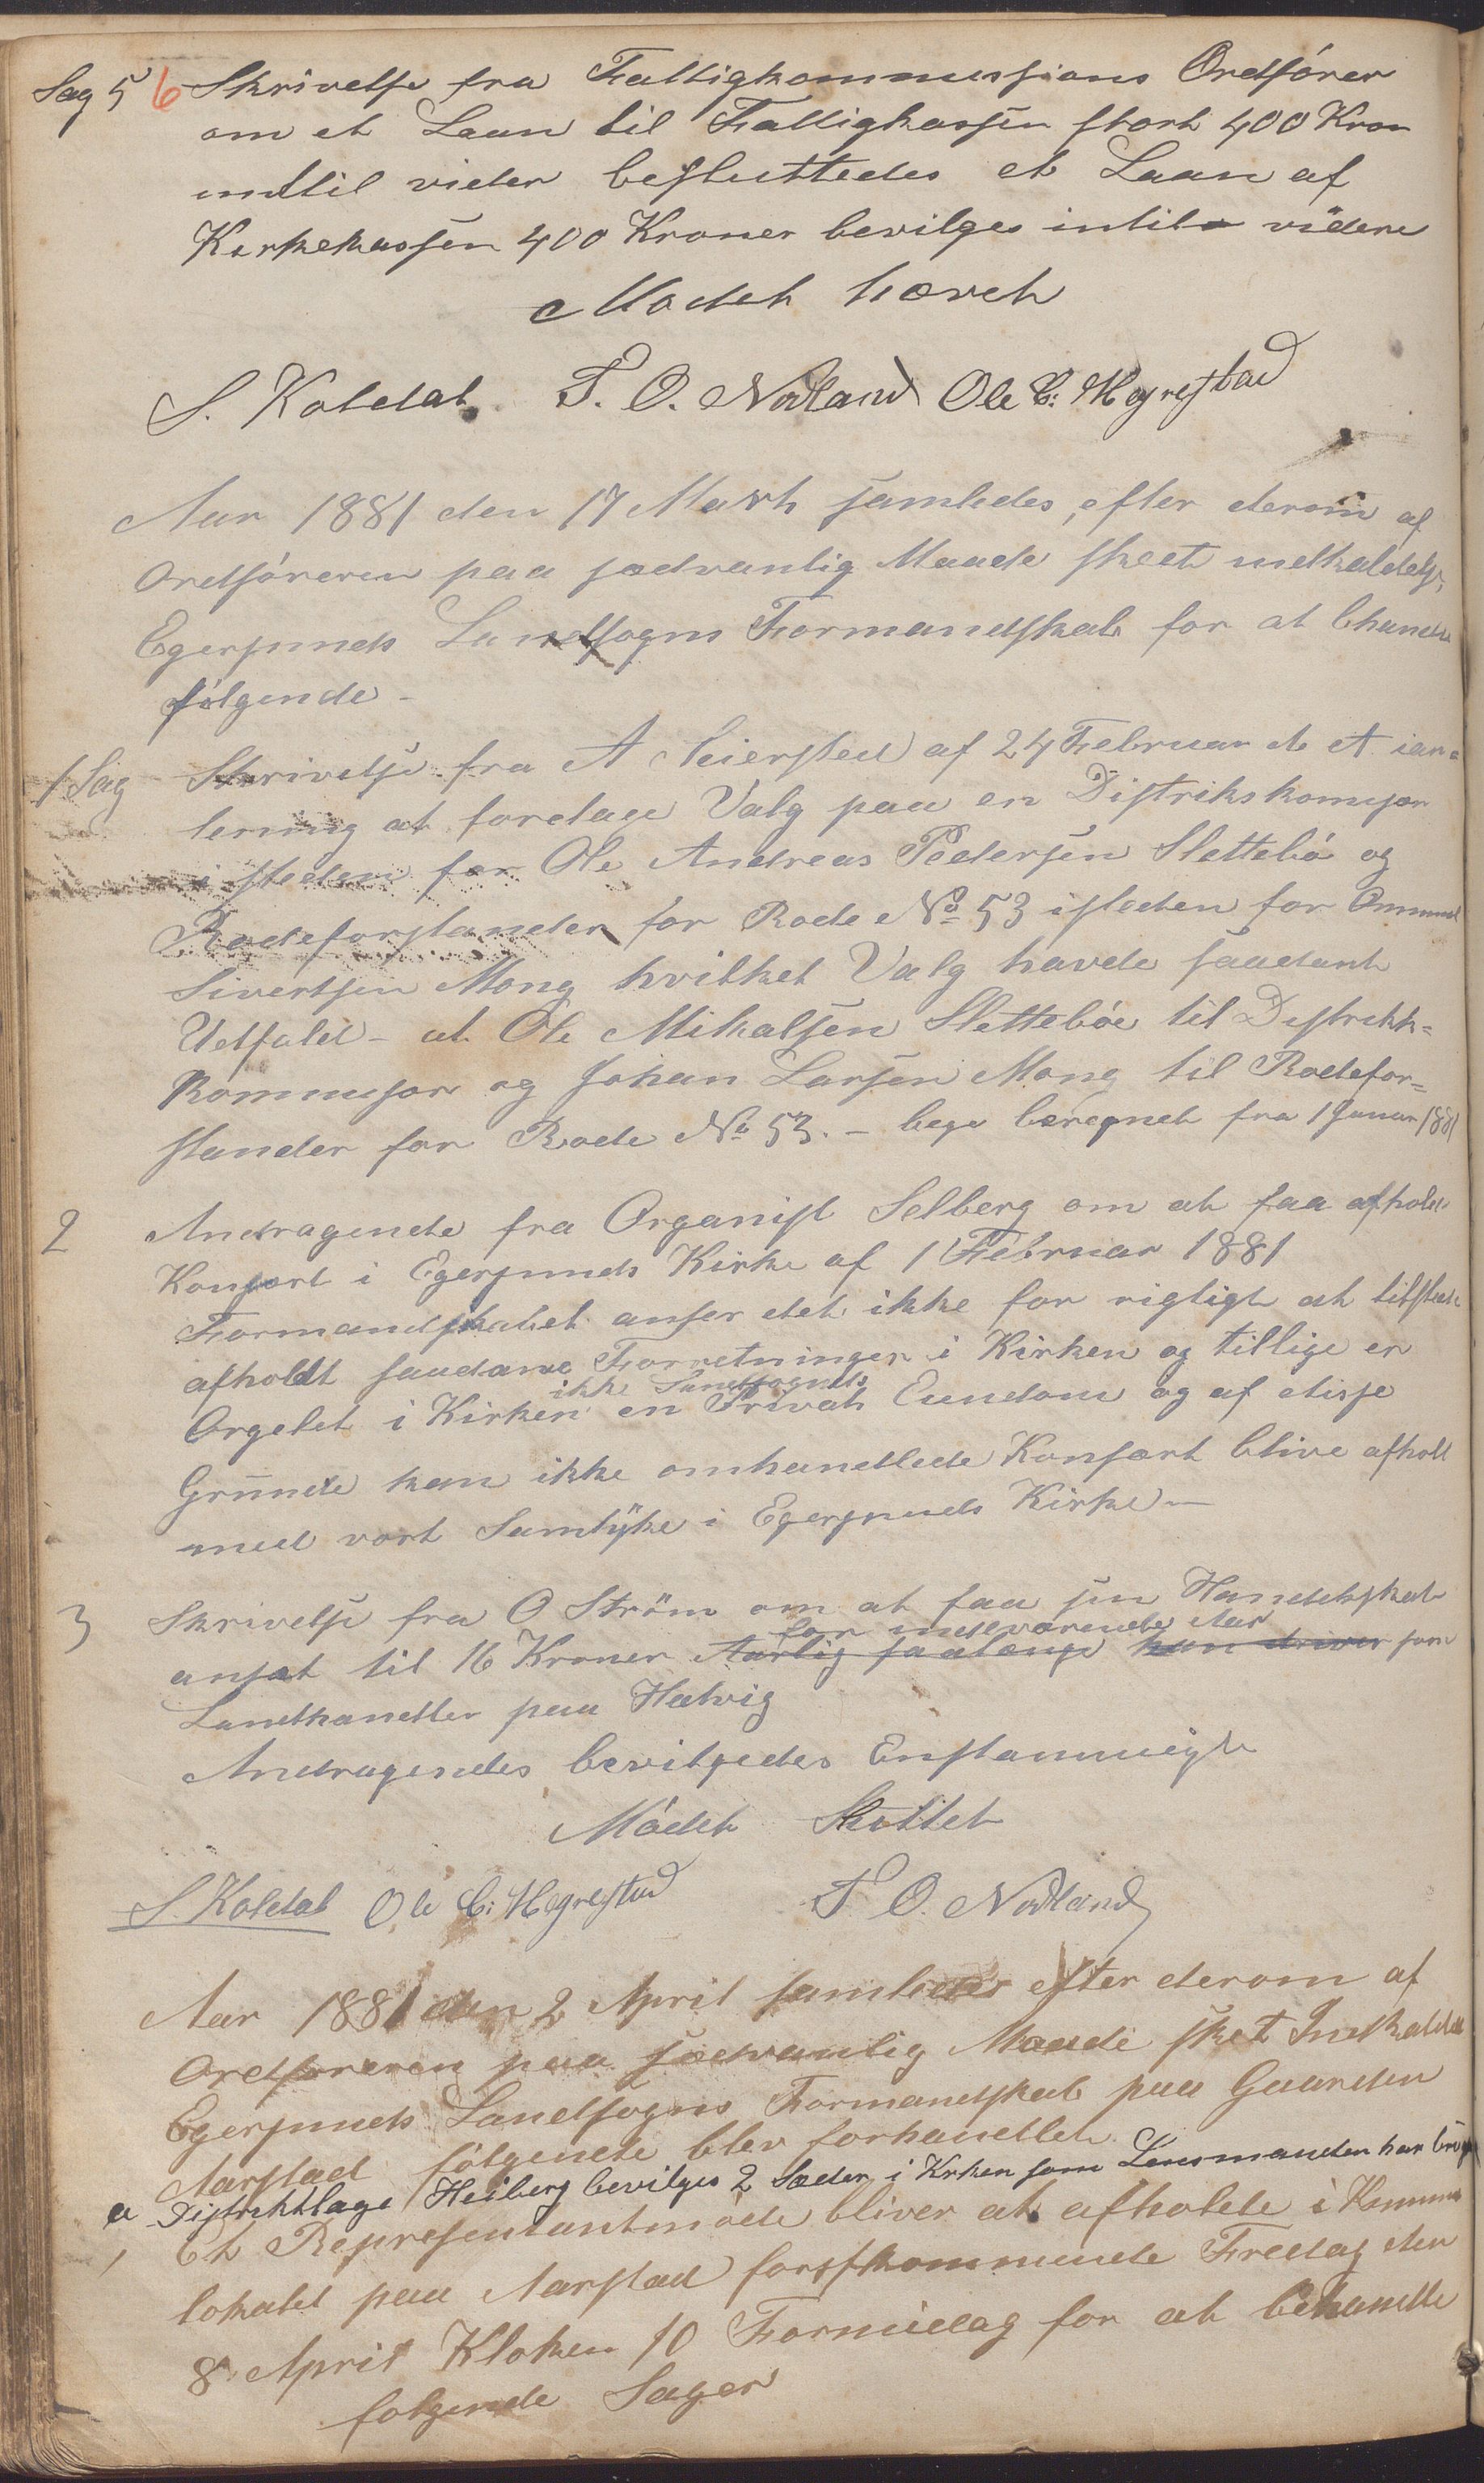 Sag 5 6 Skrivelse fra Fattigkommissions Ordfører
om et Laan til Fattigkassen stort 400 Kron
indtil vider besluttedes et Laan af
Kirkekassen 400 Kroner bevilges intil videre
Mødet hævet
S. Koldal T. O. Nodland Ole C. Hegrestad
Aar 1881 den 17 Marth samledes, efter derom af
Ordføreren paa sædvanlig Maade skeet indkaldelse,
Egersunds Landsogns Formandskab for at behandle
følgende -
1 Sag Skrivelse fra A Feiersted af 24 Februar d. A. i an=
lening at foretage Valg paa en Distrikskomisær
i steden for Ole Andreas Pedersen Slettebø og
Rodeforstander for Rode No 53 isteden for Ommund
Sivertsen Mong hvilket Valg havde saadant
Udfald - at Ole Mikalsen Slettebøe til Distrikts=
Kommisær og Johan Larsen Mong til Rodefor=
stander for Rode No 53. - bege beregnet fra 1 Januar 1881
2 Andragende fra Organist Selberg om at faa afholde
Konsert i Egersunds Kirke af 1 Februar 1881
Formandskabet anser det ikke for rigtigt at tilstede
afholdt saadane Forretninger i Kirken og tillige er
ikke Landsognets
Orgelet i Kirken en Privat Eiendom og af disse
Grunde kan ikke omhandlede Konsært blive afholt
med vort Samtykke i Egersunds Kirke -
3 Skrivelse fra O Strøm om at faa sin Handelsskat
for indeværende Aar
ansat til 16 Kroner Aarlig saalænge han driver som
Landhandler paa Hælvig
Andragendes bevilgedes Enstammigt
Mødet Sluttet
S. Koldal Ole C. Hegrestad T. O. Nodland
Aar 1881 den 2 April samledes efter derom af
Ordføreren paa sædvanlig Maade sket Indkaldelse
Egersunds Landsogns Formandskab paa Gaarden
Aarstad følgende blev forhandlet.
a Distriktlæge Heiberg bevilges 2 Sæder i Kirken som Lensmanden har brugt
1 Et Representantmøde bliver at afholde i Kommune
lokalet paa Aarstad førstkommende Fredag den
8 April Kloken 10 Formidag for at behandle
følgende Sager